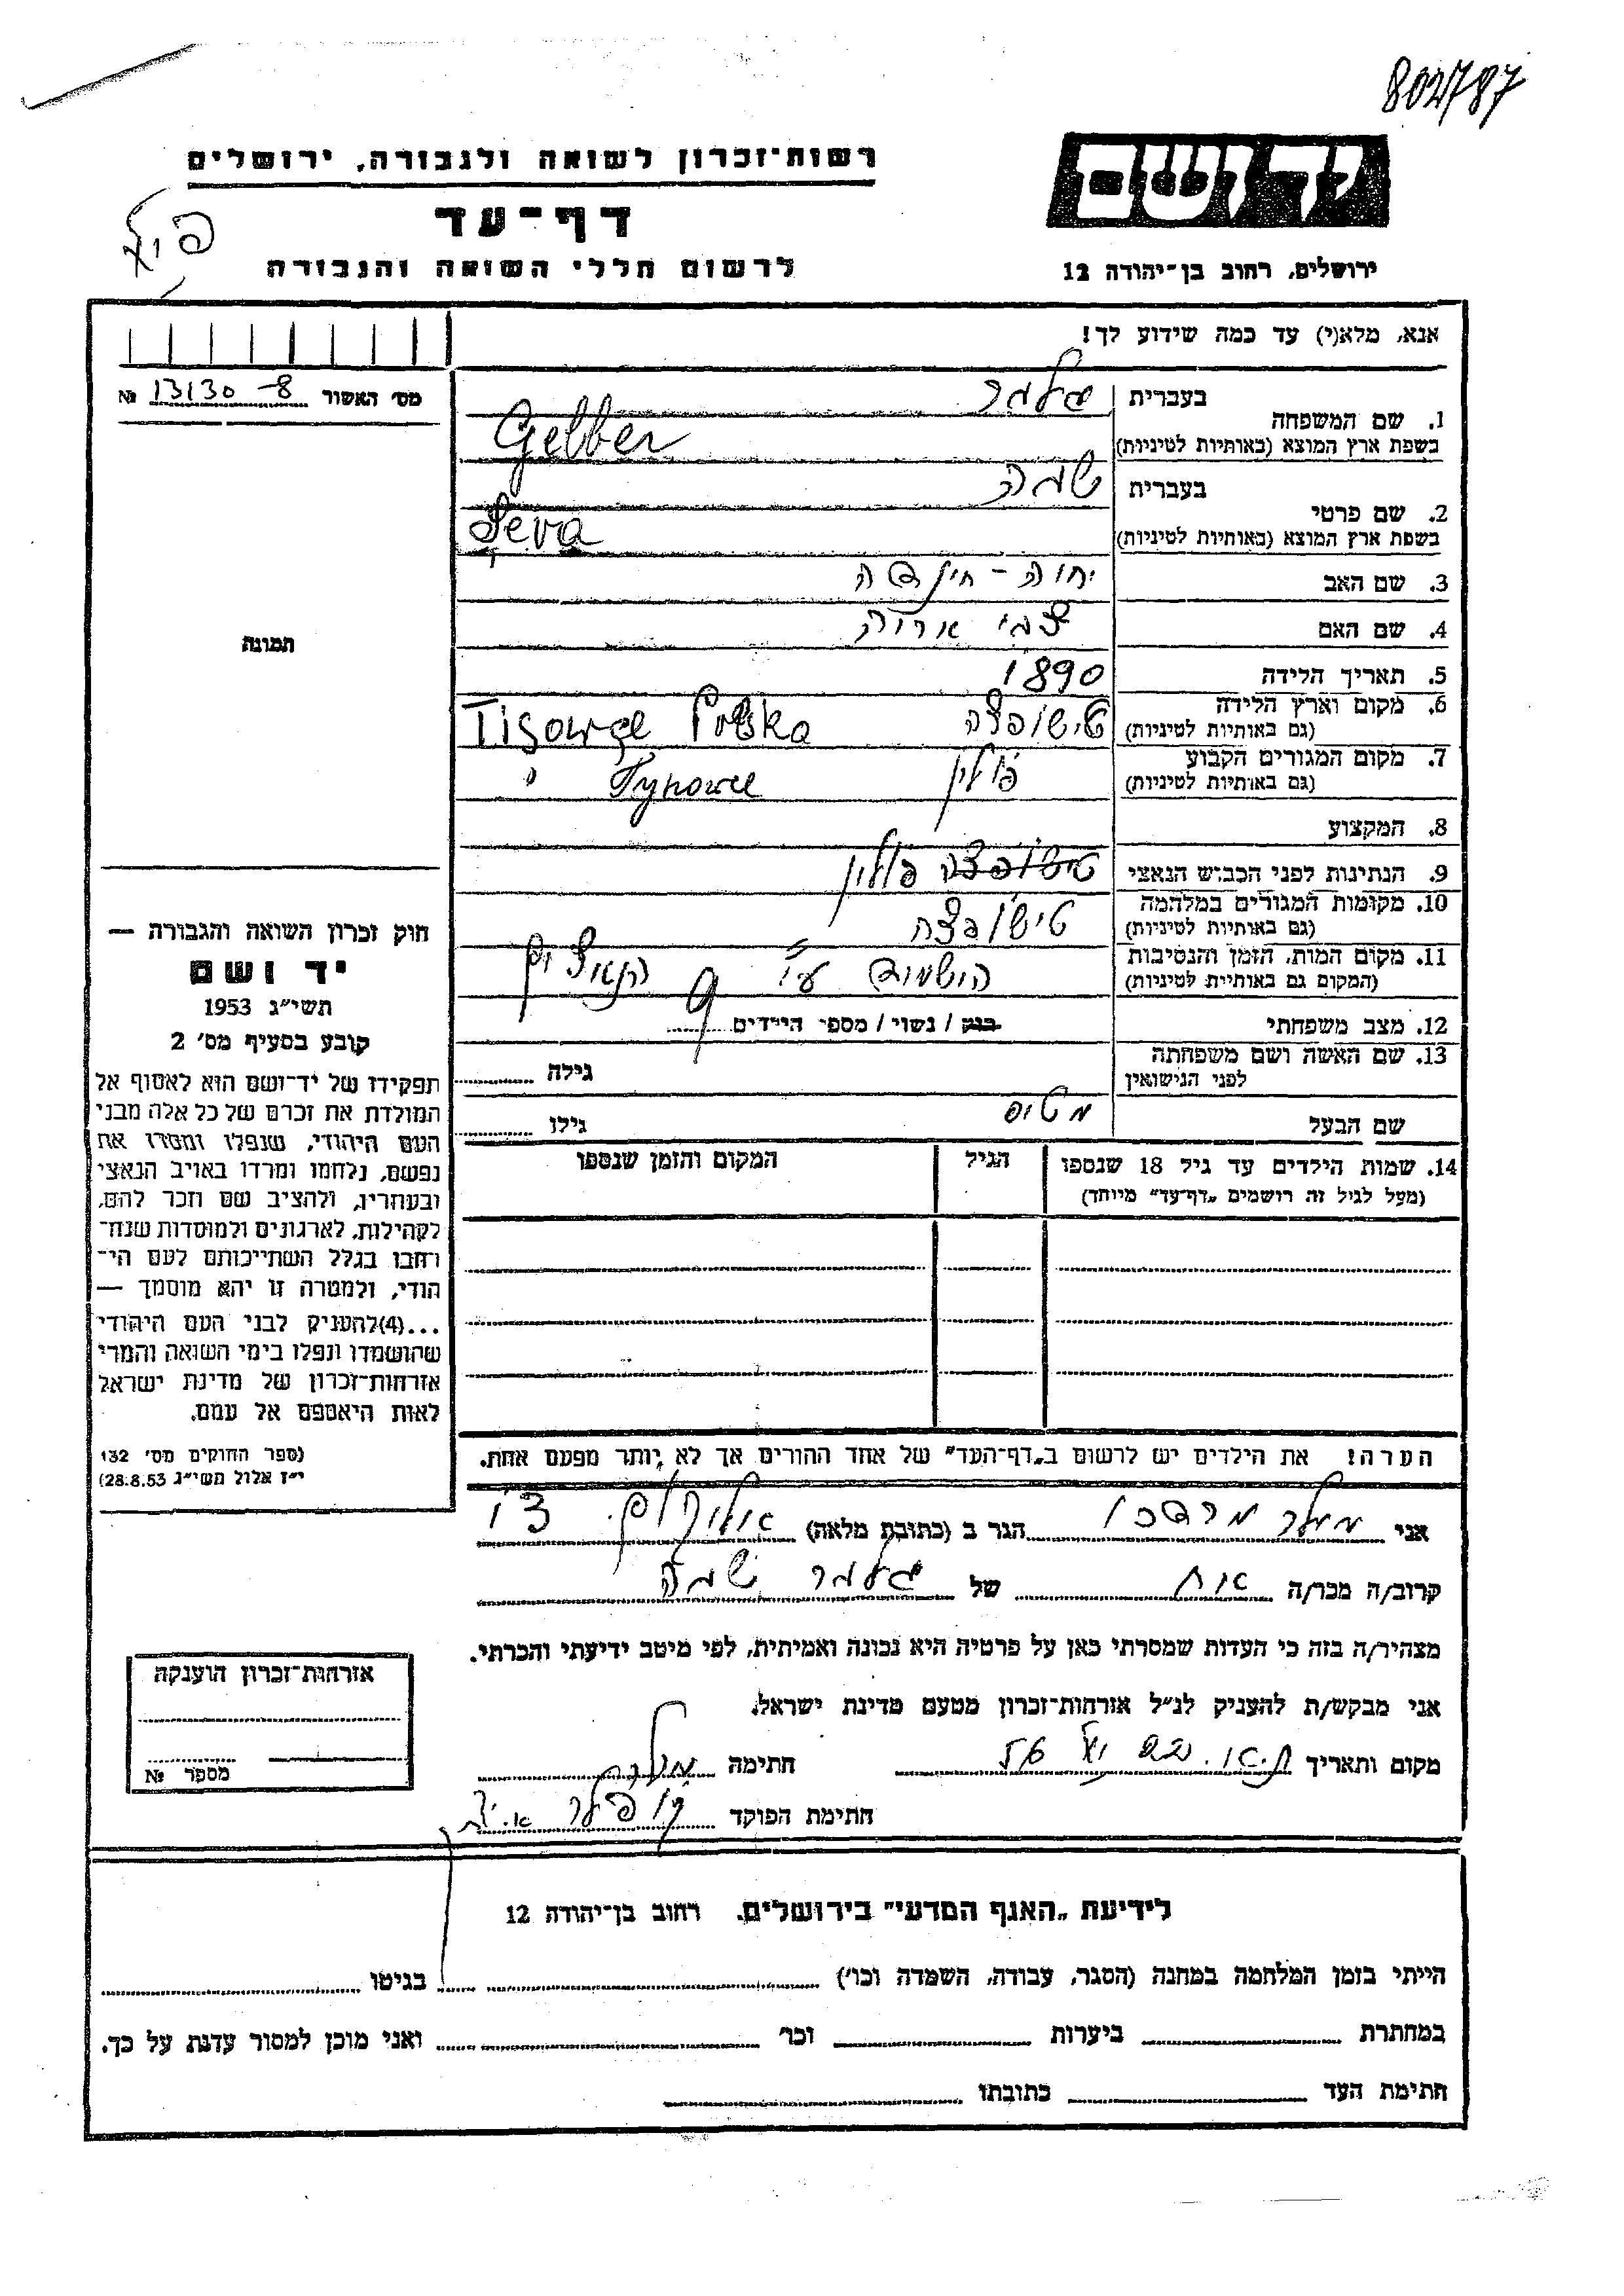 802787
רשות־זכרון לשואה ולגבורה, ירושלים
יד ושם
דף־עד
לרשום חללי השואה והגבורה
ירושלים, רחוב בן־יהודה 12
אנא, מלא(י) עד כמה שידוע לך!
מס׳ האשור 8-13130 №
1. שם המשפחה
בעברית גלבר
בשפת ארץ המוצא (באותיות לטיניות) Gelber
2. שם פרטי
בעברית שבה
בשפת ארץ המוצא (באותיות לטיניות)
3. שם האב
4. שם האם
5. תאריך הלידה 1890
6. מקום וארץ הלידה (גם באותיות לטיניות) טישובצה Polska
7. מקום המגורים הקבוע (גם באותיות לטיניות) פולין
8. המקצוע
9. הנתינות לפני הכבוש הנאצי טישובצה פולין
10. מקומות המגורים במלחמה (גם באותיות לטיניות) טישובצה
11. מקום המות, הזמן והנסיבות (המקום גם באותיית לטיניות) הושמדה ע״י הנאצים
12. מצב משפחתי רווק / נשוי / מספר הילדים 9
13. שם האשה ושם משפחתה לפני הנישואין גילה
שם הבעל גילו
14. שמות הילדים עד גיל 18 שנספו
(מעל לגיל זה רושמים „דף־עד״ מיוחד)
הגיל
המקום והזמן שנספו
הערה! את הילדים יש לרשום ב„דף־העד״ של אחד ההורים אך לא יותר מפעם אחת.
תמונה
חוק זכרון השואה והגבורה —
יד ושם
תשי״ג 1953
קובע בסעיף מס׳ 2
תפקידו של יד־ושם הוא לאסוף אל
המולדת את זכרם של כל אלה מבני
העם היהודי, שנפלו ומסרו את
נפשם, נלחמו ומרדו באויב הנאצי
ובעוזריו, ולהציב שם וזכר להם,
לקהילות, לארגונים ולמוסדות שנח־
רחבו בגלל השתייכותם לעם הי־
הודי, ולמטרה זו יהא מוסמך —
...(4)להעניק לבני העם היהודי
שהושמדו ונפלו בימי השואה והמרי
אזרחות־זכרון של מדינת ישראל
לאות היאספם אל עמם.
(ספר החוקים מס׳ 132
י״ז אלול תשי״ג 28.8.53)
אני מרדכי הגר ב (כתובת מלאה)
קרוב/ה מכר/ה אח של גלבר שבה
מצהיר/ה בזה כי העדות שמסרתי כאן על פרטיה היא נכונה ואמיתית, לפי מיטב ידיעתי והכרתי.
אני מבקש/ת להעניק לנ״ל אזרחות־זכרון מטעם מדינת ישראל.
מקום ותאריך חתימה
חתימת הפוקד
אזרחות־זכרון הוענקה
מספר №
לידיעת „האגף המדעי״ בירושלים, רחוב בן־יהודה 12
הייתי בזמן המלחמה במחנה (הסגר, עבודה, השמדה וכו׳) בגיטו
במחתרת ביערות וכו׳ ואני מוכן למסור עדות על כך.
חתימת העד כתובתו